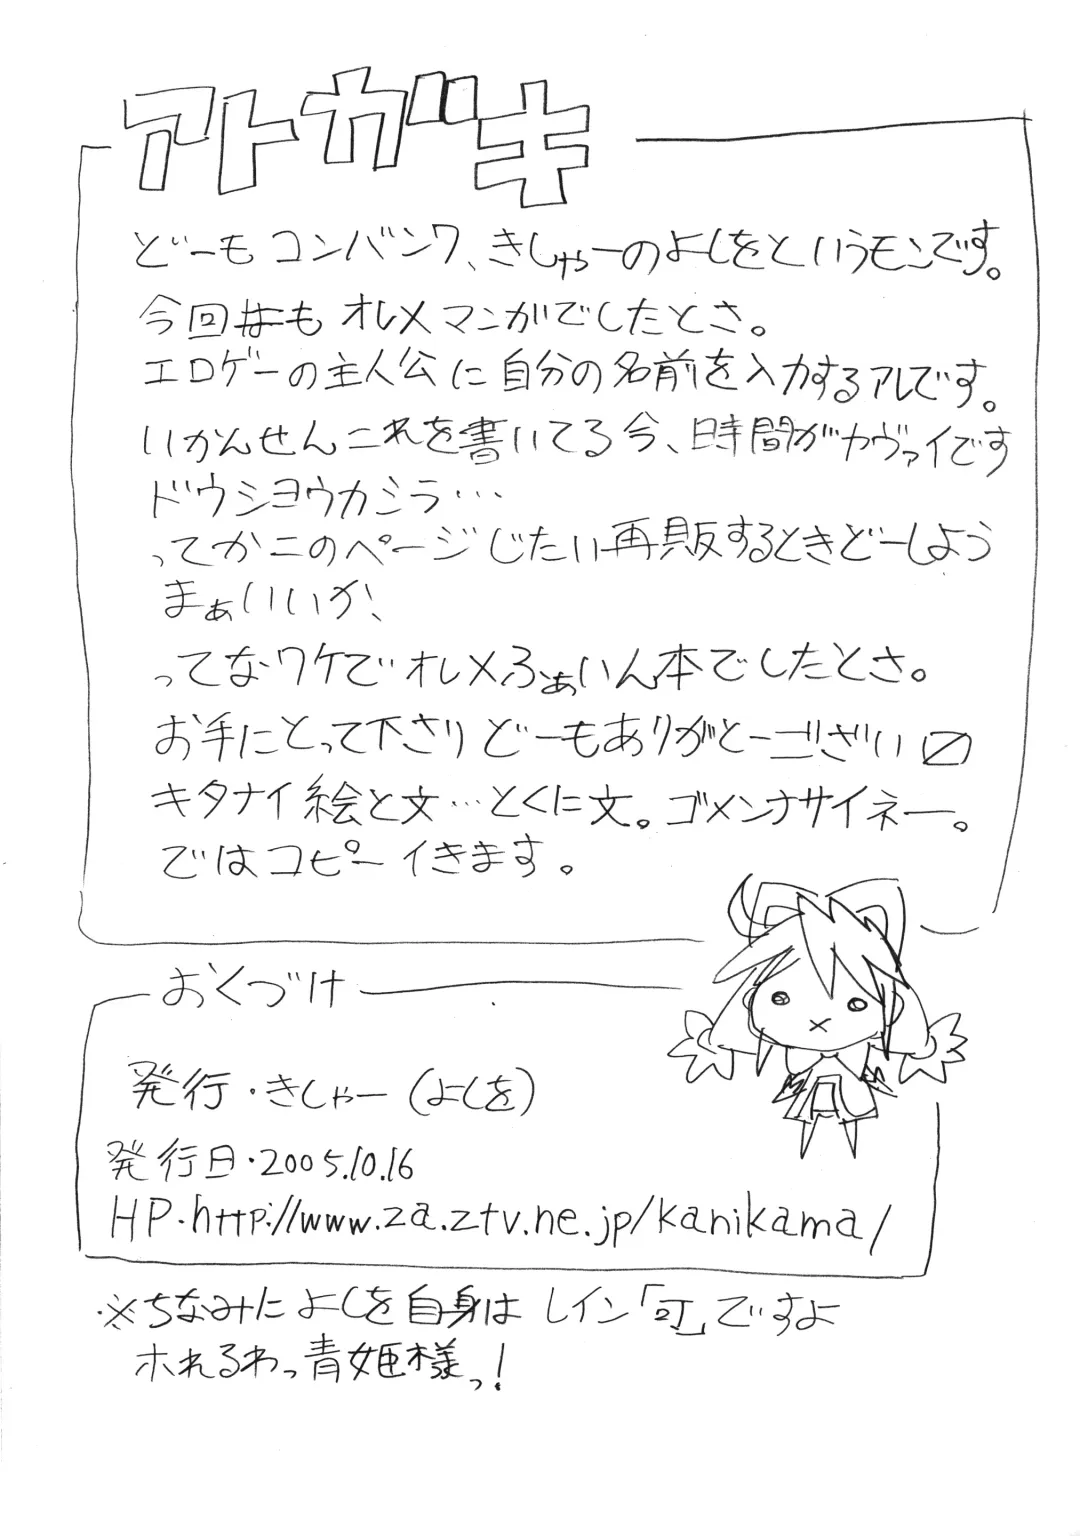 アトガキ
どーもコンバンワ、きしゃーのよしをというモンです。
今回も オレメマンガでしたとさ。
エロゲーの主人公に自分の名前を入力するアレです。
いかんせんこれを書いてる今、時間がヤヴァイです
ドウシヨウカシラ…
ってかこのページじたい再販するときどーしよう
まぁいいか、
ってなワケでオレメふぁいん本でしたとさ。
お手にとって下さりどーもありがとーございい〼
キタナイ絵と文…とくに文。ゴメンナサイネー。
ではコピーイきます。
おくづけ
発行・きしゃー(よしを)
発行日・2005.10.16
HP・http://www.za.ztv.ne.jp/kanikama/
・※ちなみによしを自身は レイン「可」ですよ
ホれるわっ青姫様っ!